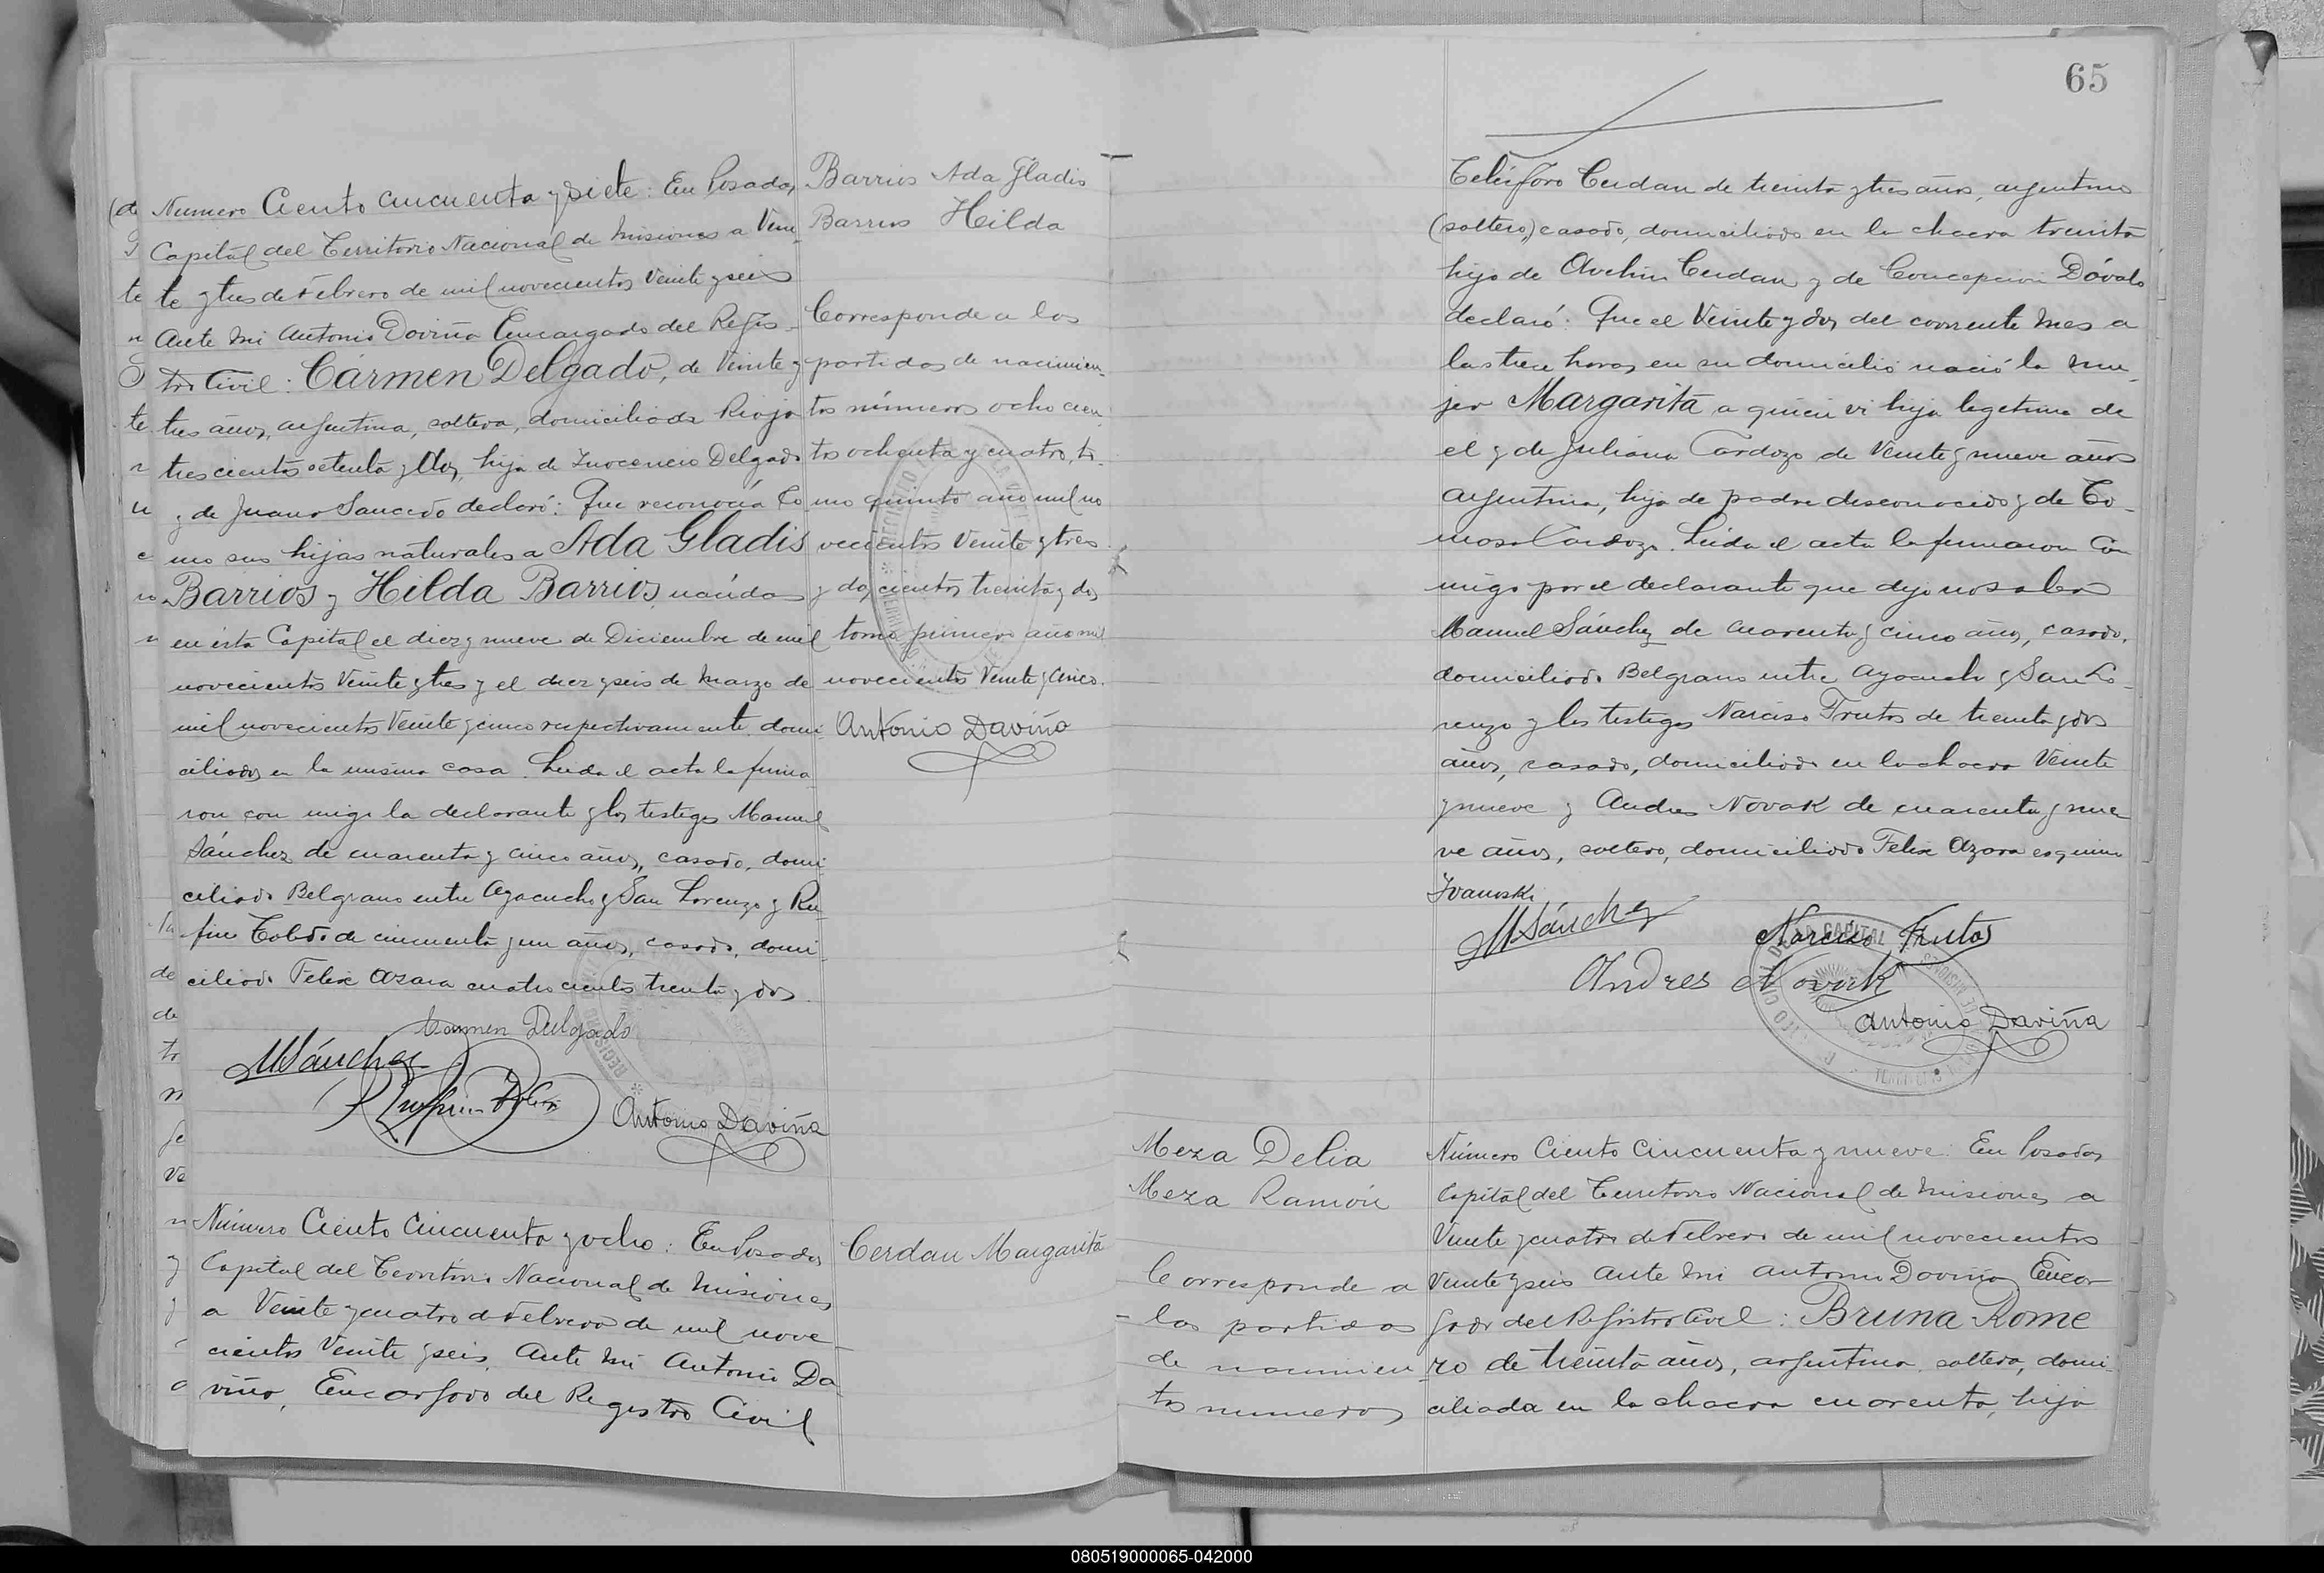 Barrios Ada Gladis
Barrios Hilda
Corresponde a las
partidas de nacimien-
tos números ochocien-
tos ochenta y cuatro, to-
mo quinto año mil no
vecientos Veinte y tres
y doscientos treinta y dos
tomo primero año mil
novecientos Veinte y cinco.
Antonio Daviña
Numero Ciento cincuenta y siete: En Posadas,
Capital del Territorio Nacional de Misiones a Vein-
te y tres de Febrero de mil novecientos Veinte y seis
Ante mi Antonio Daviña Encargado del Regis-
tro Civil: Cármen Delgado, de Veinte y
tres años, argentina, soltera, domiciliada Rioja
trescientos setenta y dos, hija de Inocencio Delgado
y de Juana Saucedo declaró: Que reconocía Co
mo sus hijas naturales a Ada Gladis
Barrios y Hilda Barrios, nacidas
en ésta Capital el diez y nueve de Diciembre de mil
novecientos Veinte y tres y el diez y seis de Marzo de
mil novecientos Veinte y cinco respectivamente, domi-
ciliadas en la misma casa. Leida el acta la firma
ron con migo la declarante y los testigos Manuel
Sánchez de cuarenta y cinco años, casado, domi-
ciliado Belgrano entre Ayacucho y San Lorenzo y Ru-
fino Toledo de cincuenta y un años, casado, domi-
ciliado Felix Azara cuatrocientos treinta y dos.
Carmen Delgado
MSánchez
Antonio Daviña
Cerdan Margarita
Número Ciento Cincuenta y ocho: En Posadas
Capital del Territorio Nacional de Misiones
a Veinte y cuatro de Febrero de mil nove
cientos Veinte y seis, Ante mi Antonio Da-
viña, Encargado del Registro Civil
65
Teléforo Cerdan de treinta y tres años, argentino
(soltero,) casado, domiciliado en la chacra treinta
hijo de Avelin Cerdan y de Concepcion Dóvalo
declaró: Que el Veinte y dos del corriente mes a
las trece horas en su domicilio nació la mu-
jer Margarita a quien vi hija legitima de
el y de Juliana Cardozo de Veinte y nueve años
argentina, hija de padre desconocido y de To-
masa Cardozo. Leida el acta la firmaron con
migo por el declarante que dijo no saber
Manuel Sánchez de cuarenta y cinco años, casado,
domiciliado Belgrano entre Ayacucho y San Lo-
renzo y los testigos Narciso Frutos de treinta y dos
años, casado, domiciliado en la chacra Veinte
y nueve y Andres Novak de cuarenta y nue
ve años, soltero, domiciliado Felix Azara esquina
Ivanoski
MSánchez
Narciso Frutos
Andres Novak
Antonio Daviña
Meza Delia
Meza Ramón
Corresponde a
las partidas
de nacimien
tos numeros
Número Ciento Cincuenta y nueve: En Posadas
Capital del Territorio Nacional de Misiones a
Veinte y cuatro de Febrero de mil novecientos
Veinte y seis Ante mi Antonio Daviña Encar-
gado del Registro Civil: Bruna Rome
ro de treinta años, argentina, soltera, domi-
ciliada en la chacra cuarenta, hija
080519000065-042000